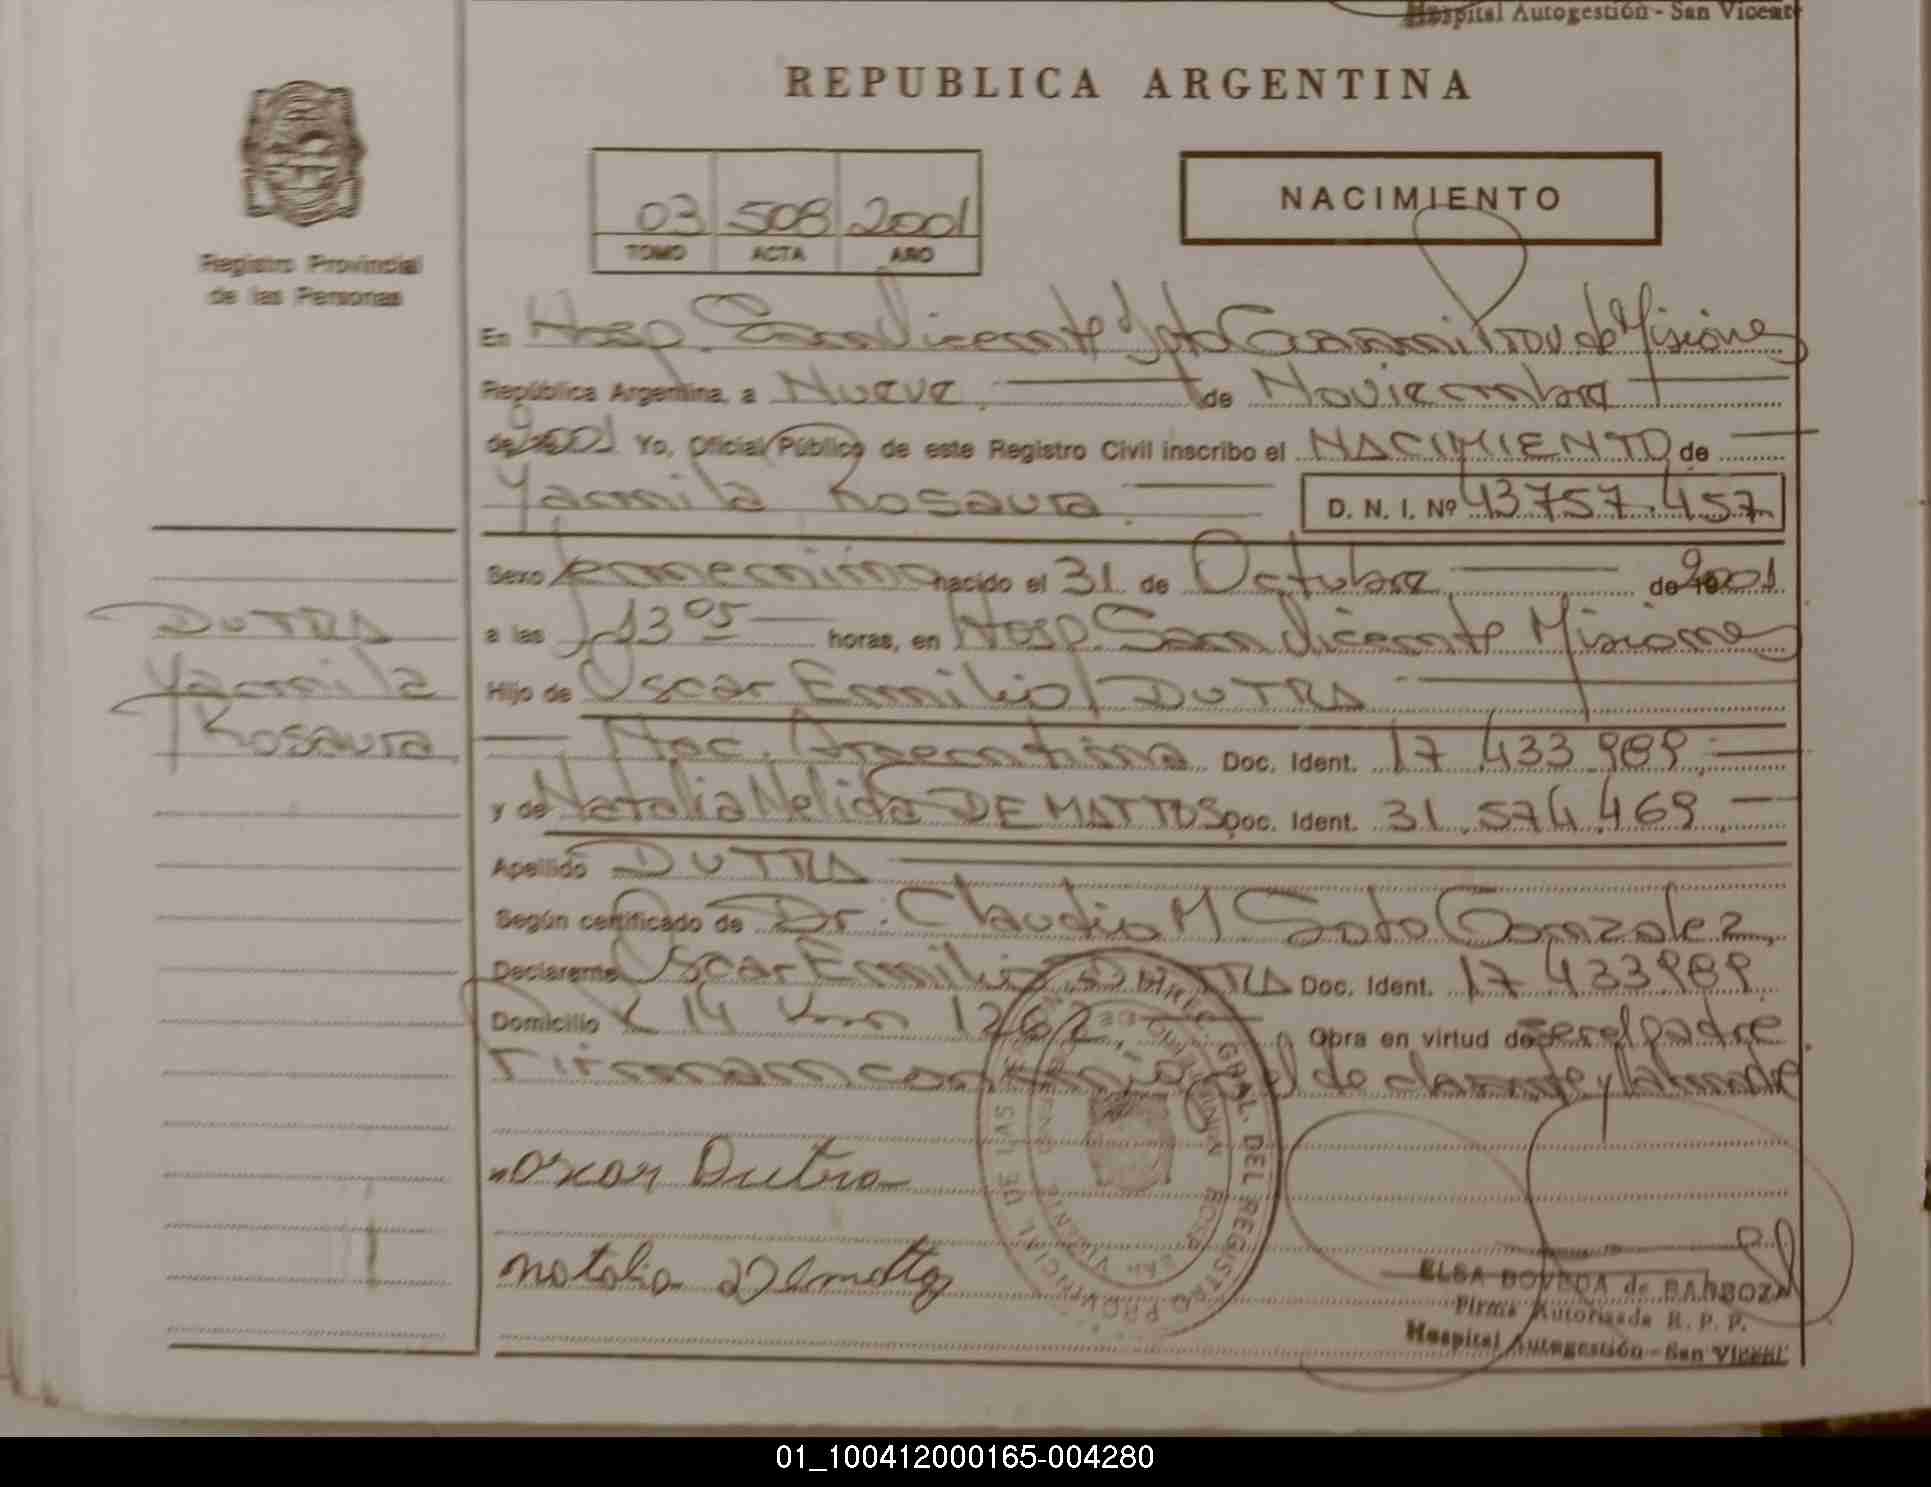 Hospital Autogestión - San Vicente
REPUBLICA ARGENTINA
03 508 2001
TOMO ACTA AÑO
NACIMIENTO
Registro Provincial
de las Personas
En Hosp. San Vicente Dpto Guarani Prov de Misiones
República Argentina, a Nueve de Noviembre
de 2001 Yo, Oficial Público de este Registro Civil inscribo el NACIMIENTO de
Yamila Rosaura D. N. I. Nº 43757.457
Sexo femenino nacido el 31 de Octubre de 2001
a las 13 05 horas, en Hosp San Vicente Misiones
Hijo de Oscar Emilio DUTRA
Nac. Argentina Doc. Ident. 17 433 989
y de Natalia Nelida DE MATTOS Doc. Ident. 31.574.469
Apellido DUTRA
Según certificado de Dr. Claudio M Soto Gonzalez
Declarente Oscar Emilio DUTRA Doc. Ident. 17 433989
Domicilio 14 Km 1262 Obra en virtud de ser el padre
Firman el y la madre
DUTRA
Yamila
Rosaura
oscar Dutra
natalia Demattos
DIREC. GRAL. DEL REGISTRO PROVINCIAL DE LAS
ELSA BOVEDA de BARBOZA
Firma Autorizada R. P. P.
Hospital Autogestión - San Vicente
01_100412000165-004280